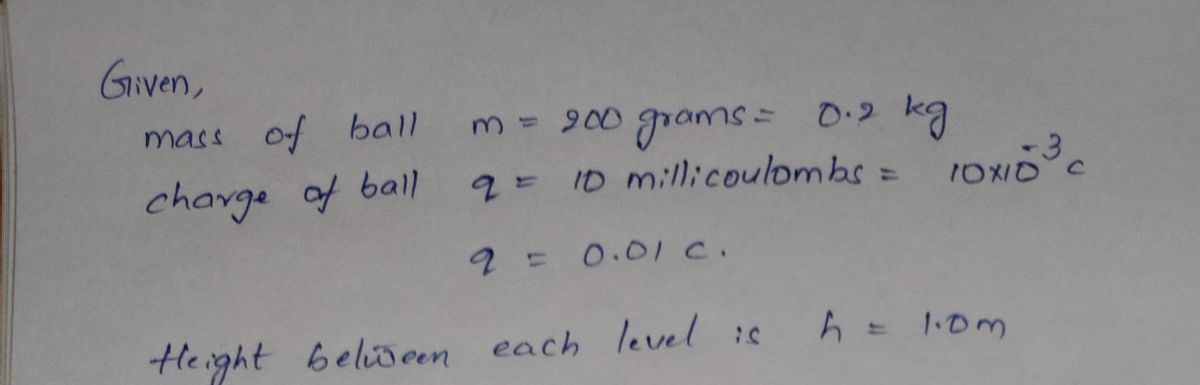 Given,
mass of ball m = 200 grams = 0.2 kg
charge of ball q = 10 millicoulombs = 10×10⁻³ c
q = 0.01 c.
Height between each level is h = 1.0m